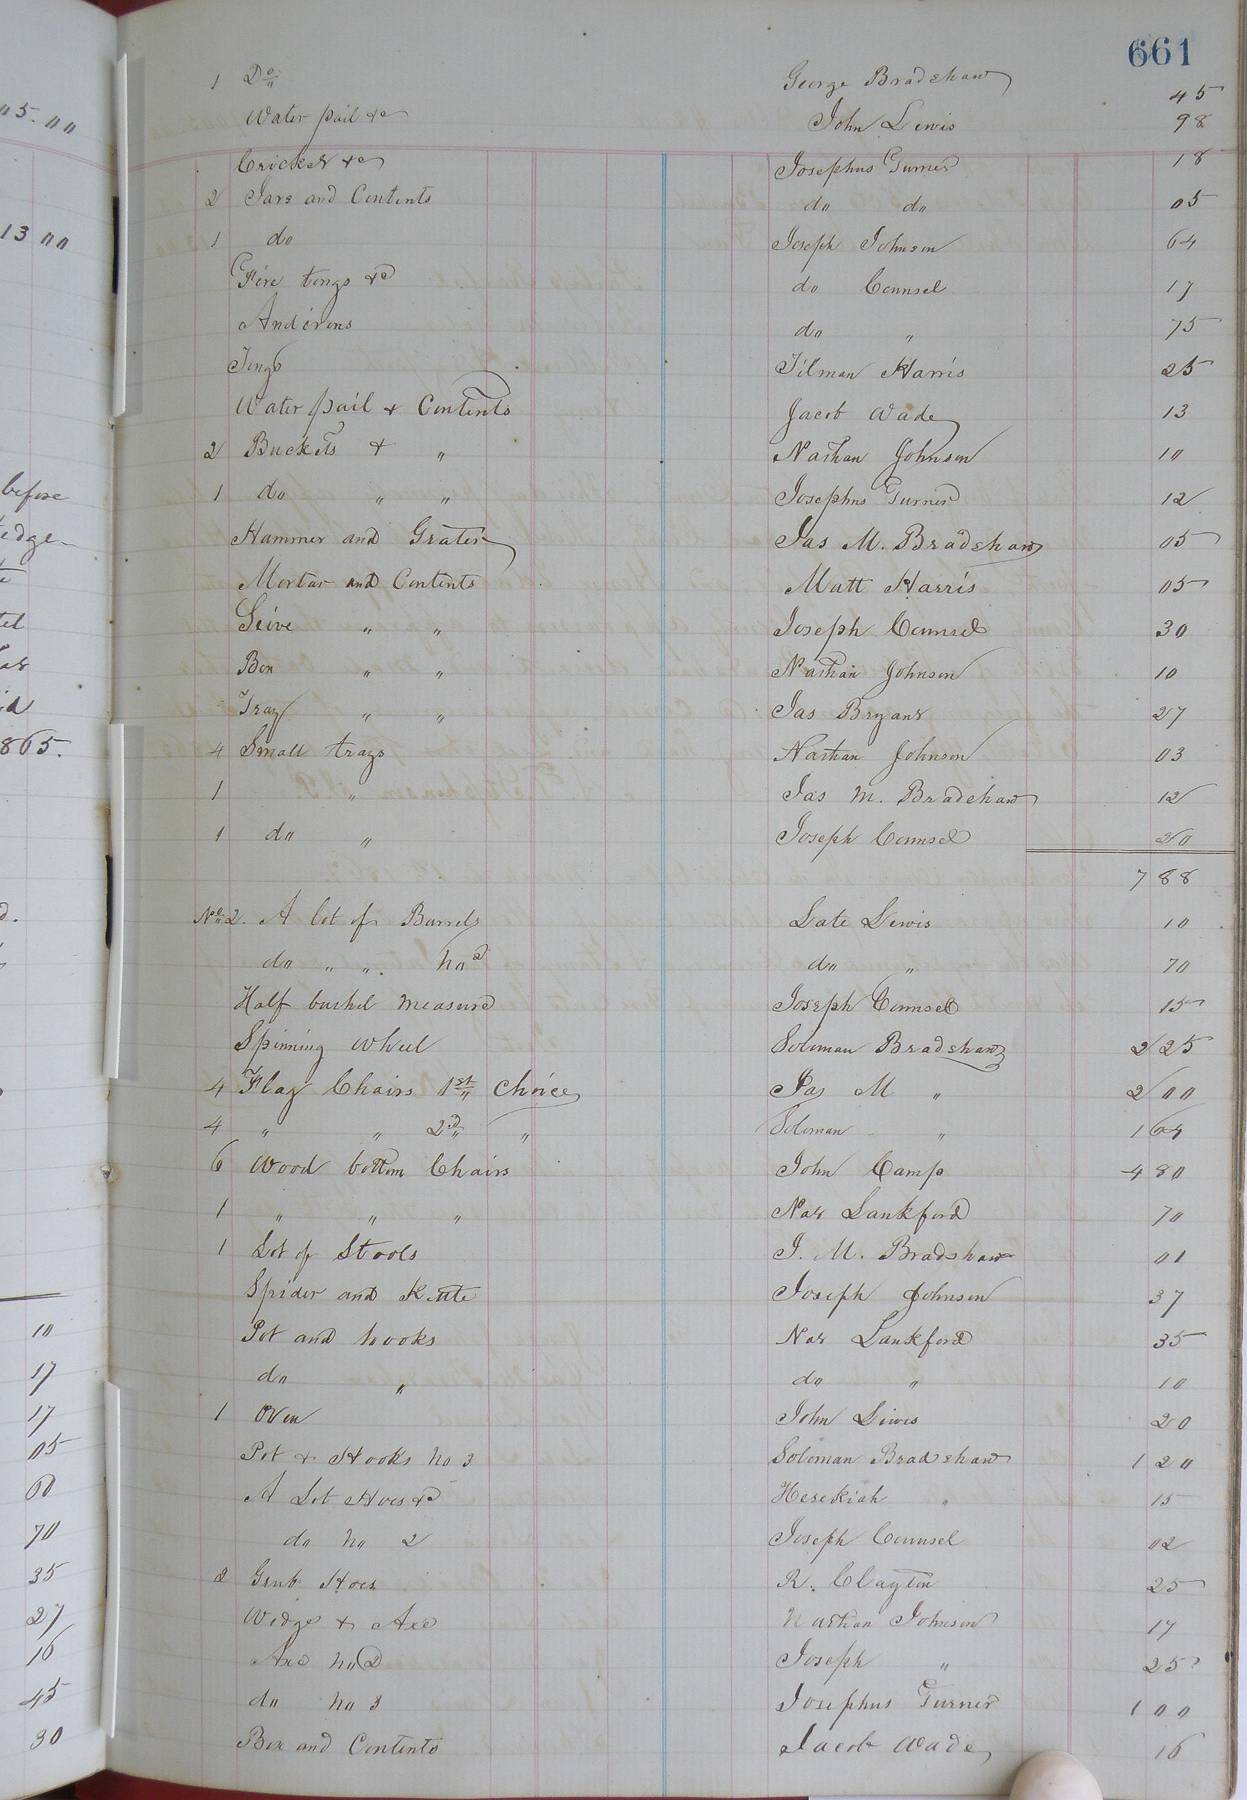 661
1 Do George Bradshaw 45
Water pail &c John Lewis 98
Cricket &c Josephus Turner 18
2 Jars and Contents do do 05
1 do Joseph Johnson 64
Fire tongs &c do Counsel 17
Andirons do " 75
Tilman Harris 25
Water pail & Contents Jacob Wade 13
2 Buckets & " Nathan Johnson 10
1 do " " Josephus Turner 12
Hammer and Grater Jas M. Bradshaw 05
Mortar and Contents Matt Harris 05
Seive " " Joseph Counsel 30
Box " " Nathan Johnson 10
Tray " " Jas Bryant 27
4 Small trays Nathan Johnson 03
1 " Jas M. Bradshaw 12
1 do " Joseph Counsel 20
7 88
No 2. A lot of Barrels Late Lewis 10
do " " no 2 do " 70
Half bushel measure Joseph Counsel 15
Spinning Wheel Soloman Bradshaw 2 25
4 Flag Chairs 1st choice Jas M " 2 00
4 " " 2d " Soloman " 1 64
6 Wood bottom Chairs John Camp 4 80
1 " " " Nat Lankford 70
1 Lot of Stools J. M. Bradshaw 01
Spider and Kettle Joseph Johnson 37
Pot and hooks Nat Lankford 35
do " do " 10
1 Oven John Lewis 20
Pot & Hooks no 3 Soloman Bradshaw 1 20
A Lot Hoes &c Hesekiah " 15
do no 2 Joseph Counsel 02
2 Grub Hoes R. Clayton 25
Wedge & Axe Nathan Johnson 17
Axe no 2 Joseph " 25
do no 3 Josephus Turner 1 00
Box and Contents Jacob Wade 16
05.00
13 00
before
865.
10
17
17
05
60
70
35
27
16
45
30